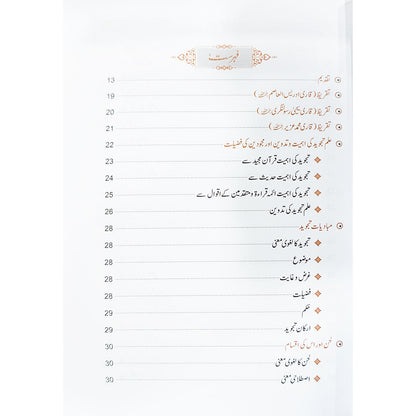 فہرست
تقدیم 13
تقریظ (قاری ادریس العاصم رحمہ اللہ) 19
تقریظ (قاری یحییٰ رسولنگری رحمہ اللہ) 20
تقریظ (قاری محمد عزیر رحمہ اللہ) 21
علم تجوید کی اہمیت و تدوین اور مجودین کی فضیلت 22
تجوید کی اہمیت قرآن مجید سے 22
تجوید کی اہمیت حدیث سے 24
تجوید کی اہمیت ائمہ قراءۃ و متقدمین کے اقوال سے 25
علم تجوید کی تدوین 26
مبادیات تجوید 28
تجوید کا لغوی معنی 28
موضوع 28
غرض و غایت 28
فضیلت 28
حکم 29
ارکان تجوید 29
لحن اور اس کی اقسام 30
لحن کا لغوی معنی 30
اصطلاحی معنی 30